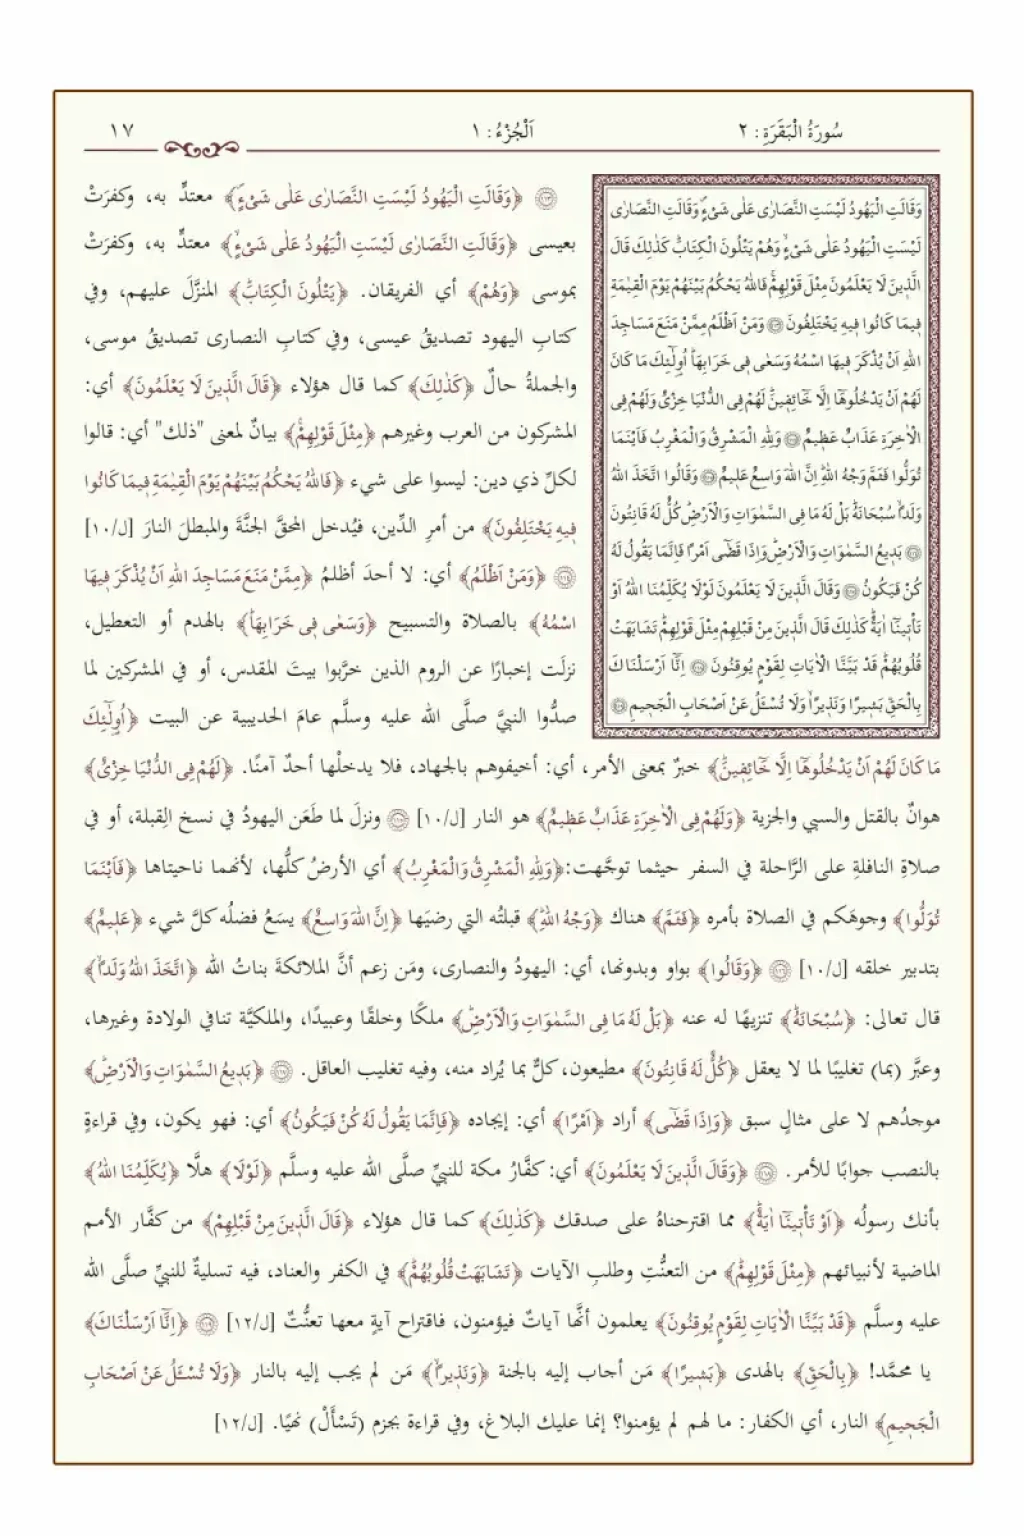 سُورَةُ الْبَقَرَةِ: ٢ اَلْجُزْءُ: ١ ١٧
وَقَالَتِ الْيَهُودُ لَيْسَتِ النَّصَارٰى عَلٰى شَيْءٍۖ وَقَالَتِ النَّصَارٰى
لَيْسَتِ الْيَهُودُ عَلٰى شَيْءٍۙ وَهُمْ يَتْلُونَ الْكِتَابَۜ كَذٰلِكَ قَالَ
الَّذِينَ لَا يَعْلَمُونَ مِثْلَ قَوْلِهِمْۚ فَاللّٰهُ يَحْكُمُ بَيْنَهُمْ يَوْمَ الْقِيٰمَةِ
فِيمَا كَانُوا فِيهِ يَخْتَلِفُونَ ﴿١١٣﴾ وَمَنْ اَظْلَمُ مِمَّنْ مَنَعَ مَسَاجِدَ
اللّٰهِ اَنْ يُذْكَرَ فِيهَا اسْمُهُ وَسَعٰى فِي خَرَابِهَاۜ اُولٰٓئِكَ مَا كَانَ
لَهُمْ اَنْ يَدْخُلُوهَٓا اِلَّا خَٓائِفِينَۜ لَهُمْ فِي الدُّنْيَا خِزْيٌ وَلَهُمْ فِي
الْاٰخِرَةِ عَذَابٌ عَظِيمٌ ﴿١١٤﴾ وَلِلّٰهِ الْمَشْرِقُ وَالْمَغْرِبُ فَاَيْنَمَا
تُوَلُّوا فَثَمَّ وَجْهُ اللّٰهِۜ اِنَّ اللّٰهَ وَاسِعٌ عَلِيمٌ ﴿١١٥﴾ وَقَالُوا اتَّخَذَ اللّٰهُ
وَلَدًاۙ سُبْحَانَهُۜ بَلْ لَهُ مَا فِي السَّمٰوَاتِ وَالْاَرْضِۜ كُلٌّ لَهُ قَانِتُونَ
﴿١١٦﴾ بَدِيعُ السَّمٰوَاتِ وَالْاَرْضِۜ وَاِذَا قَضٰٓى اَمْرًا فَاِنَّمَا يَقُولُ لَهُ
كُنْ فَيَكُونُ ﴿١١٧﴾ وَقَالَ الَّذِينَ لَا يَعْلَمُونَ لَوْلَا يُكَلِّمُنَا اللّٰهُ اَوْ
تَأْتِينَٓا اٰيَةٌۜ كَذٰلِكَ قَالَ الَّذِينَ مِنْ قَبْلِهِمْ مِثْلَ قَوْلِهِمْۜ تَشَابَهَتْ
قُلُوبُهُمْۜ قَدْ بَيَّنَّا الْاٰيَاتِ لِقَوْمٍ يُوقِنُونَ ﴿١١٨﴾ اِنَّٓا اَرْسَلْنَاكَ
بِالْحَقِّ بَشِيرًا وَنَذِيرًاۙ وَلَا تُسْـَٔلُ عَنْ اَصْحَابِ الْجَحِيمِ ﴿١١٩﴾
﴿١١٣﴾ ﴿وَقَالَتِ الْيَهُودُ لَيْسَتِ النَّصَارٰى عَلٰى شَيْءٍۖ﴾ معتدٍّ به، وكفرَتْ
بعيسى ﴿وَقَالَتِ النَّصَارٰى لَيْسَتِ الْيَهُودُ عَلٰى شَيْءٍۙ﴾ معتدٍّ به، وكفرَتْ
بموسى ﴿وَهُمْ﴾ أي الفريقان. ﴿يَتْلُونَ الْكِتَابَۜ﴾ المنزَّلَ عليهم، وفي
كتابِ اليهود تصديقُ عيسى، وفي كتابِ النصارى تصديقُ موسى،
والجملةُ حالٌ ﴿كَذٰلِكَ﴾ كما قال هؤلاء ﴿قَالَ الَّذِينَ لَا يَعْلَمُونَ﴾ أي:
المشركون من العرب وغيرهم ﴿مِثْلَ قَوْلِهِمْۚ﴾ بيانٌ لمعنى "ذلك" أي: قالوا
لكلِّ ذي دين: ليسوا على شيء ﴿فَاللّٰهُ يَحْكُمُ بَيْنَهُمْ يَوْمَ الْقِيٰمَةِ فِيمَا كَانُوا
فِيهِ يَخْتَلِفُونَ﴾ من أمرِ الدِّين، فيُدخل المحقَّ الجنَّةَ والمبطلَ النارَ [ل/١٠]
﴿١١٤﴾ ﴿وَمَنْ اَظْلَمُ﴾ أي: لا أحدَ أظلمُ ﴿مِمَّنْ مَنَعَ مَسَاجِدَ اللّٰهِ اَنْ يُذْكَرَ فِيهَا
اسْمُهُ﴾ بالصلاة والتسبيح ﴿وَسَعٰى فِي خَرَابِهَاۜ﴾ بالهدم أو التعطيل،
نزلَت إخبارًا عن الروم الذين خرَّبوا بيتَ المقدس، أو في المشركين لما
صدُّوا النبيَّ صلَّى الله عليه وسلَّم عامَ الحديبية عن البيت ﴿اُولٰٓئِكَ
مَا كَانَ لَهُمْ اَنْ يَدْخُلُوهَٓا اِلَّا خَٓائِفِينَۜ﴾ خبرٌ بمعنى الأمر، أي: أخيفوهم بالجهاد، فلا يدخلْها أحدٌ آمنًا. ﴿لَهُمْ فِي الدُّنْيَا خِزْيٌ﴾
هوانٌ بالقتل والسبي والجزية ﴿وَلَهُمْ فِي الْاٰخِرَةِ عَذَابٌ عَظِيمٌ﴾ هو النار [ل/١٠] ﴿١١٥﴾ ونزلَ لما طَعَن اليهودُ في نسخ القِبلة، أو في
صلاةِ النافلةِ على الرَّاحلة في السفر حيثما توجَّهت:﴿وَلِلّٰهِ الْمَشْرِقُ وَالْمَغْرِبُ﴾ أي الأرضُ كلُّها، لأنهما ناحيتاها ﴿فَاَيْنَمَا
تُوَلُّوا﴾ وجوهَكم في الصلاة بأمره ﴿فَثَمَّ﴾ هناك ﴿وَجْهُ اللّٰهِۜ﴾ قبلتُه التي رضيَها ﴿اِنَّ اللّٰهَ وَاسِعٌ﴾ يسَعُ فضلُه كلَّ شيء ﴿عَلِيمٌ﴾
بتدبير خلقه [ل/١٠] ﴿١١٦﴾ ﴿وَقَالُوا﴾ بواو وبدونها، أي: اليهودُ والنصارى، ومَن زعم أنَّ الملائكةَ بناتُ الله ﴿اتَّخَذَ اللّٰهُ وَلَدًاۙ﴾
قال تعالى: ﴿سُبْحَانَهُۜ﴾ تنزيهًا له عنه ﴿بَلْ لَهُ مَا فِي السَّمٰوَاتِ وَالْاَرْضِۜ﴾ ملكًا وخلقًا وعبيدًا، والملكيَّة تنافي الولادة وغيرها،
وعبَّر (بما) تغليبًا لما لا يعقل ﴿كُلٌّ لَهُ قَانِتُونَ﴾ مطيعون، كلٌّ بما يُراد منه، وفيه تغليب العاقل. ﴿١١٧﴾ ﴿بَدِيعُ السَّمٰوَاتِ وَالْاَرْضِۜ﴾
موجدُهم لا على مثالٍ سبق ﴿وَاِذَا قَضٰٓى﴾ أراد ﴿اَمْرًا﴾ أي: إيجاده ﴿فَاِنَّمَا يَقُولُ لَهُ كُنْ فَيَكُونُ﴾ أي: فهو يكون، وفي قراءةٍ
بالنصب جوابًا للأمر. ﴿١١٨﴾ ﴿وَقَالَ الَّذِينَ لَا يَعْلَمُونَ﴾ أي: كفَّارُ مكة للنبيِّ صلَّى الله عليه وسلَّم ﴿لَوْلَا﴾ هلَّا ﴿يُكَلِّمُنَا اللّٰهُ﴾
بأنك رسولُه ﴿اَوْ تَأْتِينَٓا اٰيَةٌۜ﴾ مما اقترحناهُ على صدقك ﴿كَذٰلِكَ﴾ كما قال هؤلاء ﴿قَالَ الَّذِينَ مِنْ قَبْلِهِمْ﴾ من كفَّار الأمم
الماضية لأنبيائهم ﴿مِثْلَ قَوْلِهِمْۜ﴾ من التعنُّتِ وطلبِ الآيات ﴿تَشَابَهَتْ قُلُوبُهُمْۜ﴾ في الكفر والعناد، فيه تسليةٌ للنبيِّ صلَّى الله
عليه وسلَّم ﴿قَدْ بَيَّنَّا الْاٰيَاتِ لِقَوْمٍ يُوقِنُونَ﴾ يعلمون أنَّها آياتٌ فيؤمنون، فاقتراح آيةٍ معها تعنُّتٌ [ل/١٢] ﴿١١٩﴾ ﴿اِنَّٓا اَرْسَلْنَاكَ﴾
يا محمَّد! ﴿بِالْحَقِّ﴾ بالهدى ﴿بَشِيرًا﴾ مَن أجاب إليه بالجنة ﴿وَنَذِيرًاۙ﴾ مَن لم يجب إليه بالنار ﴿وَلَا تُسْـَٔلُ عَنْ اَصْحَابِ
الْجَحِيمِ﴾ النار، أي الكفار: ما لهم لم يؤمنوا؟ إنما عليك البلاغ، وفي قراءة بجزم (تَسْأَلْ) نهيًا. [ل/١٢]